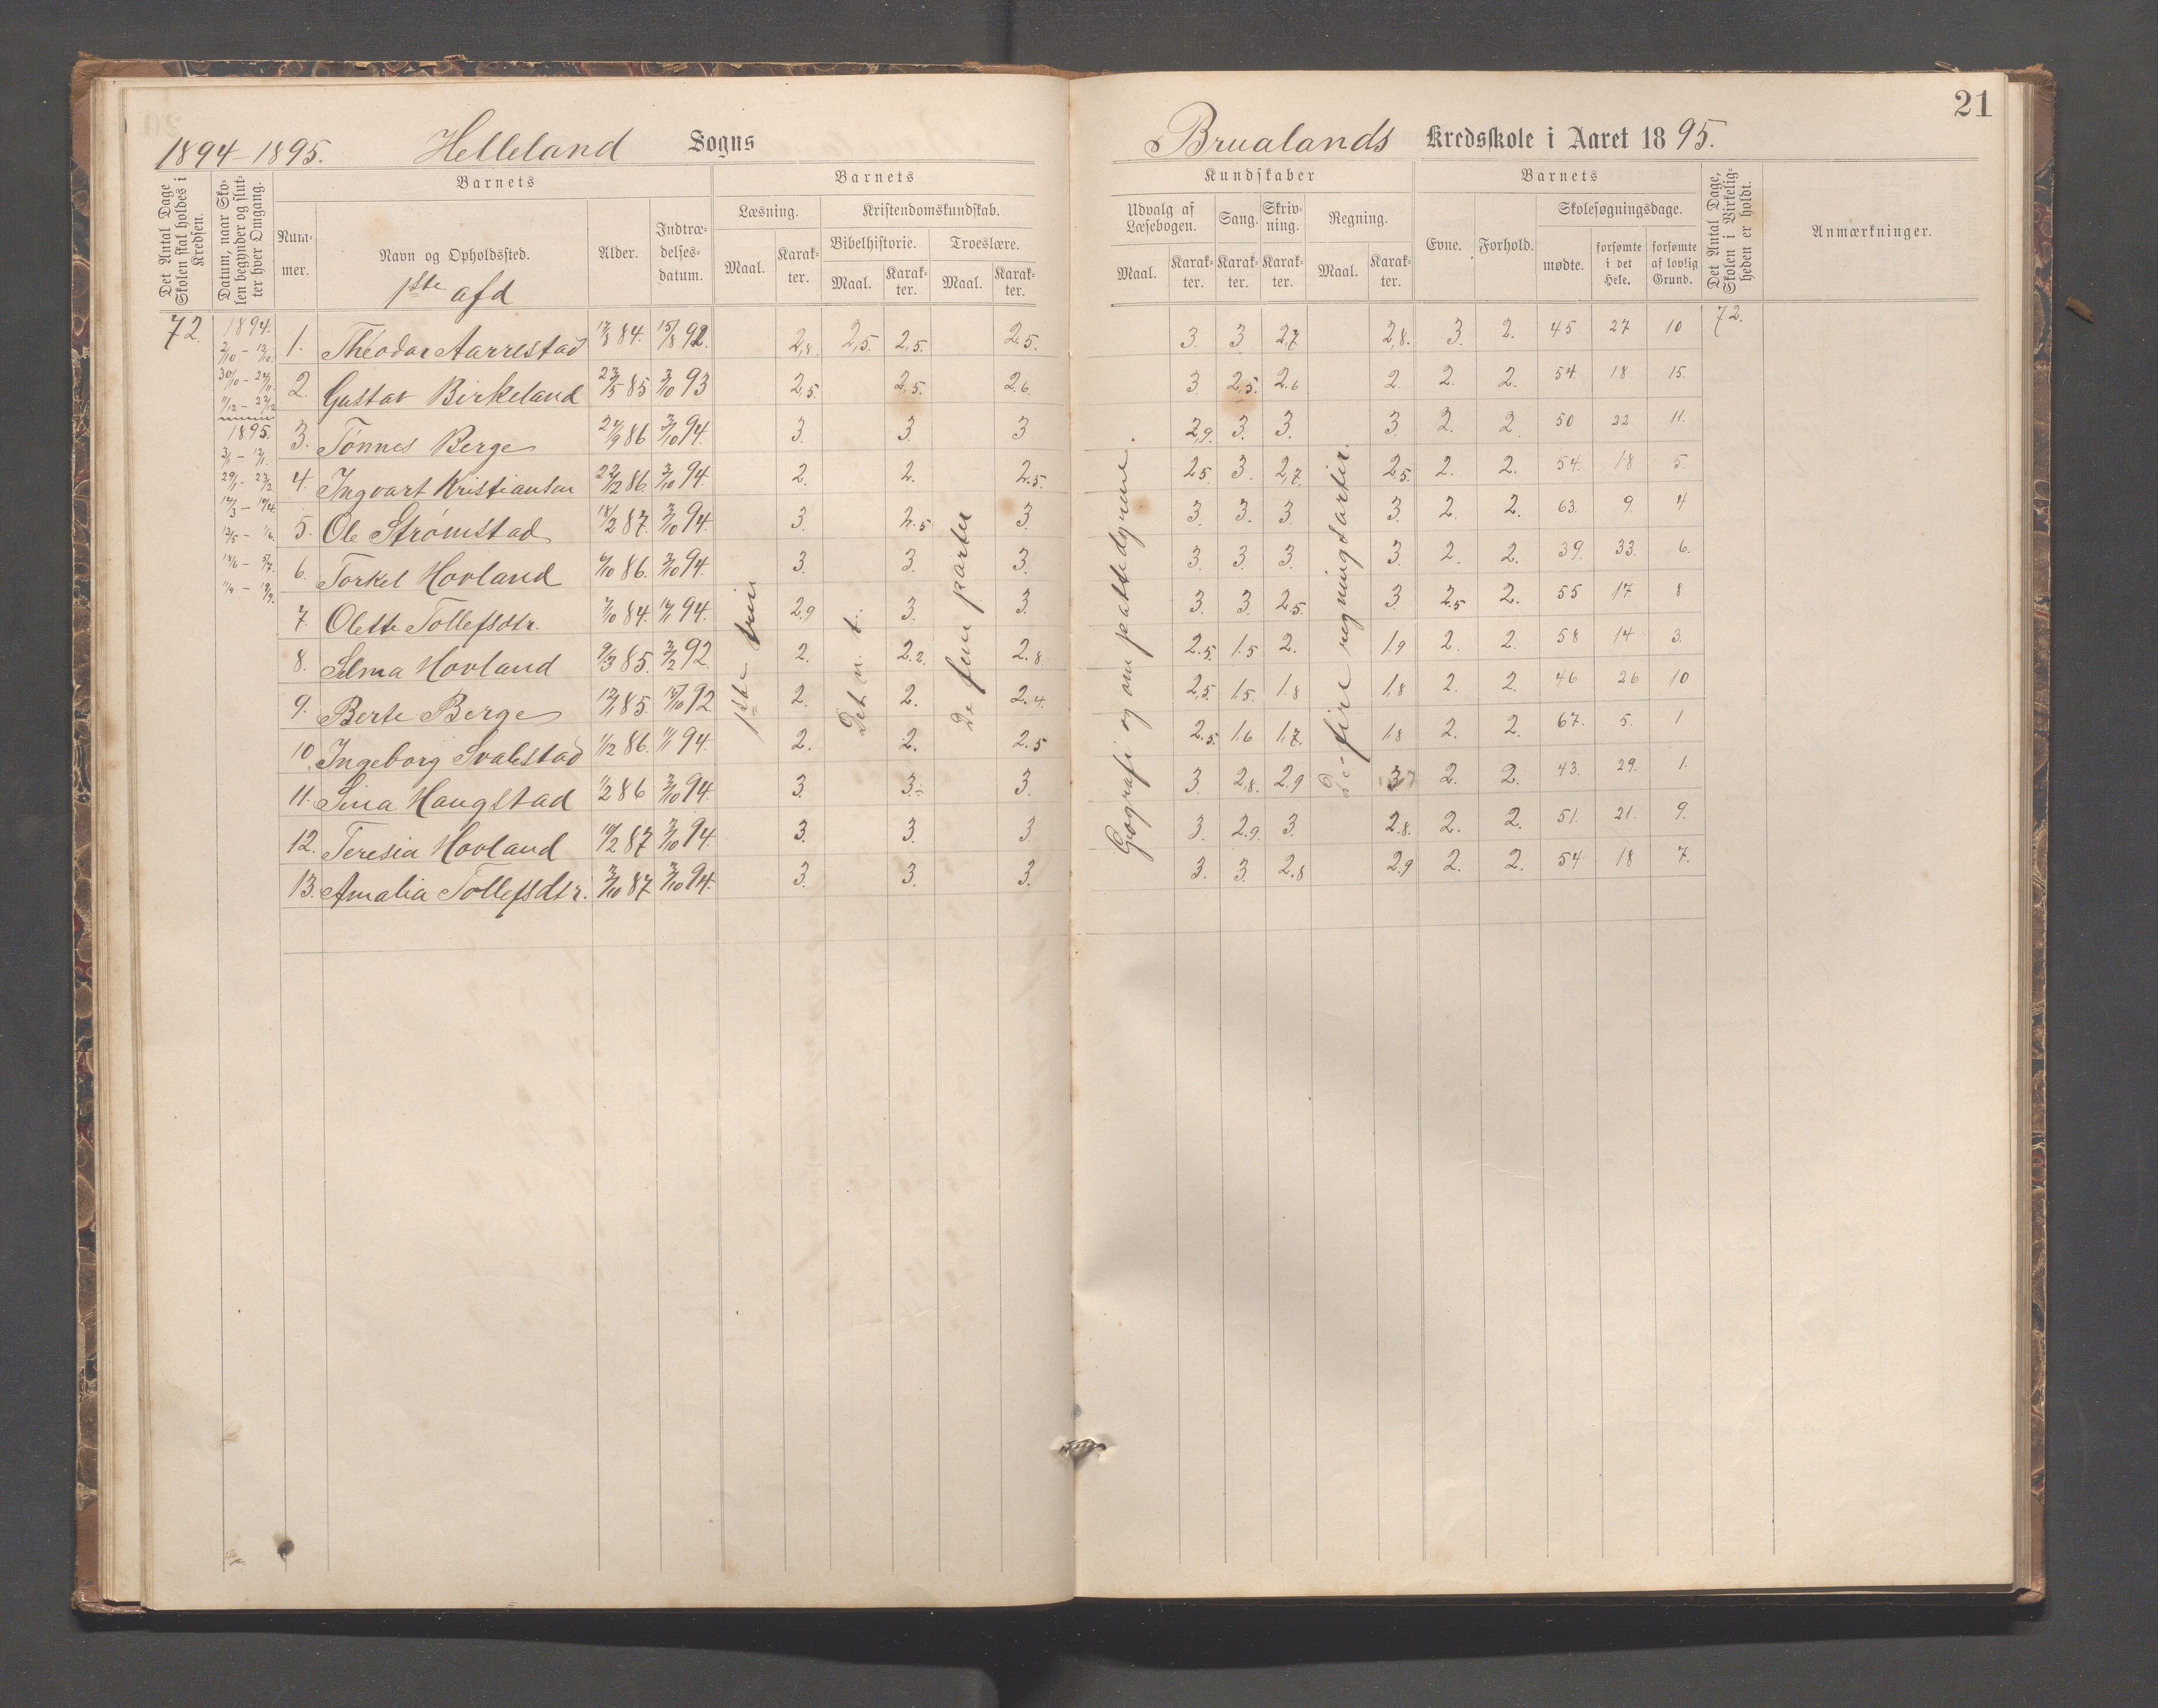 21
1894-1895. Helleland Sogns
Brualands Kredsskole i Aaret 1895.
Det Antal Dage Skolen skal holdes i Kredsen.
Datum, naar Skolen begynder og slutter hver Omgang.
Barnets
Nummer.
Navn og Opholdssted.
1ste afd
Alder.
Indtrædelsesdatum.
Barnets
Læsning.
Maal. Karakter.
Kristendomskundskab.
Bibelhistorie. Troeslære.
Maal. Karakter. Maal. Karakter.
Kundskaber
Udvalg af Læsebogen. Sang. Skrivning. Regning.
Maal. Karakter. Karakter. Karakter. Maal. Karakter.
Barnets
Evne. Forhold.
Skolesøgningsdage.
mødte. forsømte i det Hele. forsømte af lovlig Grund.
Det Antal Dage, Skolen i Virkeligheden er holdt.
Anmærkninger.
72.
1894.
1895.
1ste trin
Det n. t.
De fem parter
Geografi og om pattedyrene.
De fire regningsarter.
1. Theodor Aarrestad 84. 15/8 92. 2,8. 2,5. 2,5. 2.5. 3. 3 2,7 2,8. 3. 2. 45 27 10 72.
2. Gustav Birkeland 23/5 85 3/10 93 2,5. 2,5. 2.6 3 2,5. 2.6 2. 2. 2. 54. 18 15.
3. Tønnes Berge 27/9 86 3/10 94. 3. 3. 3 2,9. 3. 3. 3. 2. 2 50 22 11.
4. Ingvart Kristiansen 22/12 86. 3/10 94. 2. 2. 2.5. 2.5. 3. 2,7. 2,5. 2. 2. 54. 18 5.
5. Ole Strømstad 18/2 87. 3/10 94. 3. 2.5 3. 3. 3. 3. 3. 2. 2. 63. 9. 4
6. Torkel Hovland 6/10 86. 3/10 94. 3. 3. 3. 3. 3. 3. 3. 2. 2. 39. 33. 6.
7. Olette Tollefsdtr. 7/10 84. 94. 2.9 3. 3. 3. 3. 2.5. 3 2.5 2. 55 17 8
8. Selma Hovland 9/3 85. 3/2 92. 2. 2.2. 2.8. 2.5. 1.5 2. 1.9 2. 2. 58 14 3.
9. Berte Berge 12/1 85. 15/10 92 2. 2. 2.4. 2,5. 1.5. 1.8 1,8 2. 2. 46 26 10
10. Ingeborg Svalestad 1/12 86. 94. 2. 2. 2.5 2.5. 1.6 1,7. 1,8 2. 2. 67. 5. 1
11. Sina Haugstad 1/2 86 3/10 94. 3. 3. 3. 3. 2,8. 2.9 3 2. 2. 43. 29. 1.
12. Teresia Hovland 19/2 87 3/10 94. 3. 3. 3 3. 2.9. 3. 2.8. 2. 2. 51. 21. 9.
13. Amalia Tollefsdtr. 3/10 87 3/10 94. 3. 3. 3. 3. 3. 2.8 2.9 2. 2. 54 18 7.